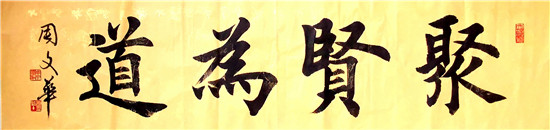 聚賢為道
周文華